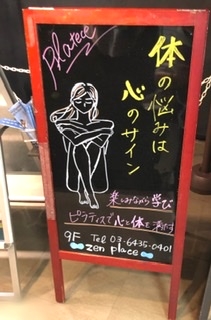 Pilates
体の悩みは
心のサイン
楽しみながら学び
ピラティスで心と体を満たす
9F Tel 03-6435-0401
zen place